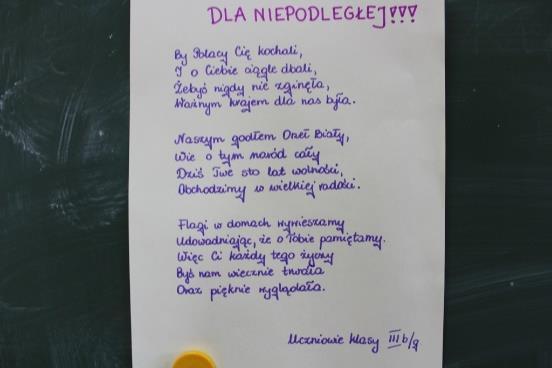 DLA NIEPODLEGŁEJ!!!
By Polacy Cię kochali,
I o Ciebie ciągle dbali,
Żebyś nigdy nie zginęła,
Ważnym krajem dla nas była.
Naszym godłem Orzeł Biały,
Wie o tym naród cały
Dziś Twe sto lat wolności,
Obchodzimy w wielkiej radości.
Flagi w domach wywieszamy
Udowadniając, że o Tobie pamiętamy.
Więc Ci każdy tego życzy
Byś nam wiecznie trwała
Oraz pięknie wyglądała.
Uczniowie klasy III b/g